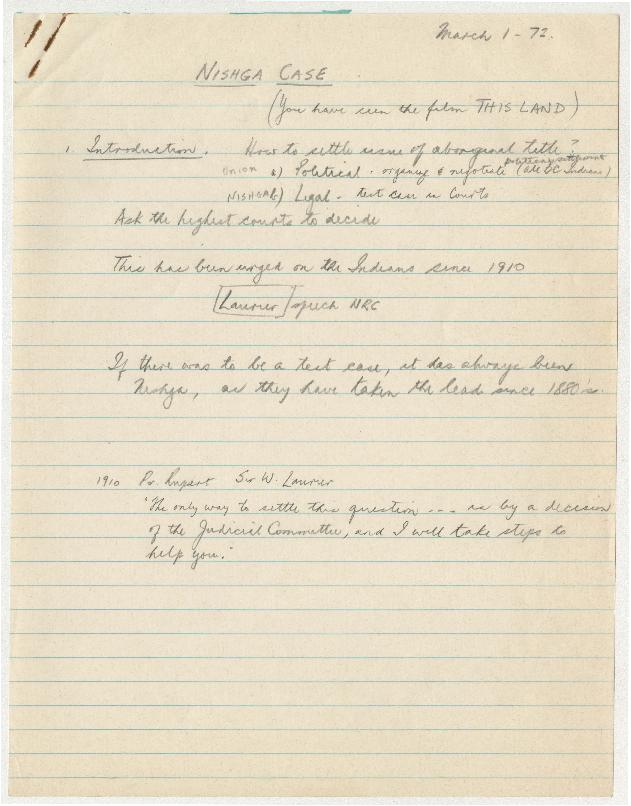 March 1 - 72.
NISHGA CASE
(You have seen the film THIS LAND)
1. Introduction. How to settle issue of aboriginal title?
UNION a) Political - organize & negotiate political settlement (all BC Indians)
NISHGA b) Legal - test case in Courts
Ask the highest courts to decide
This has been urged on the Indians since 1910
[Laurier] speech
If there was to be a test case, it has always been
Nishga, as they have taken the lead since 1880's.
1910 Pr. Rupert Sir W. Laurier
"The only way to settle this question --- is by a decision
of the Judicial Committee, and I will take steps to
help you."